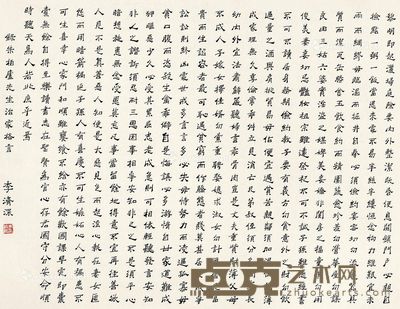 黎明即起灑埽庭除要內外整潔既昏便息關鎖門戶必親自
檢點一粥一飯當思來處不易半絲半縷恒念物力維艱宜未
雨而綢繆毋臨渴而掘井自奉必須儉約宴客切勿留連器具
質而潔瓦缶勝金玉飲食約而精園蔬愈珍饈勿營華屋勿謀
良田三姑六婆實淫盜之媒婢美妾嬌非閨房之福奴僕勿用
俊美妻妾切忌豔妝祖宗雖遠祭祀不可不誠子孫雖愚經書
不可不讀居身務期儉樸教子要有義方勿貪意外之財勿飲
過量之酒與肩挑貿易勿佔便宜見貧苦親鄰須加溫恤刻薄
成家理無久享倫常乖舛立見消亡兄弟叔侄須分多潤寡長
幼內外宜法肅辭嚴聽婦言乖骨肉豈是丈夫重貲財薄父母
不成人子嫁女擇佳壻勿索重聘娶媳求淑女勿計厚奩見富
貴而生諂容者最可恥遇貧窮而作驕態者賤莫甚居家戒爭
訟訟則終凶處世戒多言言多必失毋恃勢力而凌逼孤寡勿
貪口腹而恣殺生禽乖僻自是悔誤必多頹惰自甘家道難成
狎暱惡少久必受其累屈志老成急則可相依輕聽發言安知
非人之譖訴須忍耐三思因事相爭安知非我之不是須平心
暗想施惠無念受恩莫忘凡事當留餘地得意不宜再往善欲
人見不是真善惡恐人知便是大惡見色而起淫心報在妻女匿
可生喜幸心家門和順雖饔飧不給亦有餘歡國課早完即囊
橐無餘自得至樂讀書志在聖賢為官心存君國守分安命順
時聽天為人若此庶乎近焉
錄朱柏廬先生治家格言
李濟深
藝术网